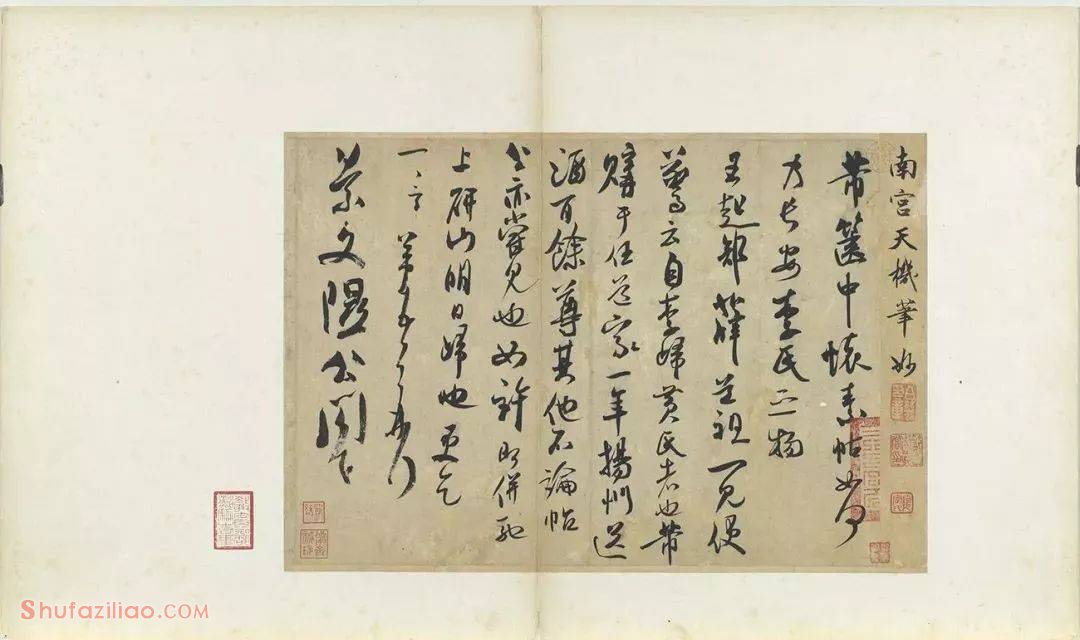 南宮天機筆妙
芾篋中懷素帖如何
乃長安李氏之物
王起部薛道祖一見便
驚云自李歸黄氏者也芾
購于任道家一年揚州送
酒百餘尊其他不論帖
公亦嘗見也如許即併馳
上研山明日歸也更乞
一言芾頓首再拜
景文隰公閤下
Shufaziliao.COM